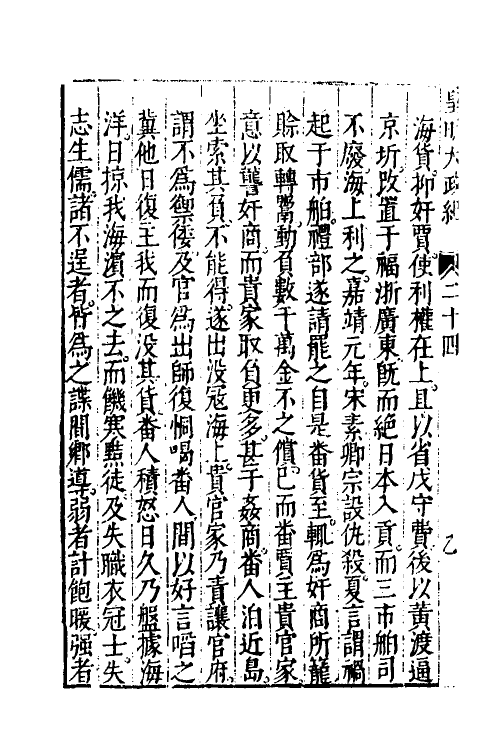 皇明大政紀 二十四
海貨抑奸賈使利權在上且以省戍守費後以黃渡逼
京圻改置于福浙廣東旣而絕日本入貢而三市舶司
不廢海上利之嘉靖元年宋素卿宗設仇殺夏言謂禍
起于市舶禮部遂請罷之自是番貨至輒爲奸商所籠
賒取轉鬻動負數千萬金不之償已而番賈主貴官家
意以讋奸商而貴家取負更多甚于姦商番人泊近島
坐索其負不能得遂出没寇海上貴官家乃責讓官府
謂不爲禦倭及官爲出師復恫喝番人間以好言啗之
冀他日復主我而復没其貨番人積怒日久乃盤據海
洋日掠我海濱不之去而饑寒黠徒及失職衣冠士失
志生儒諸不逞者皆爲之諜間鄉導弱者計飽暖强者